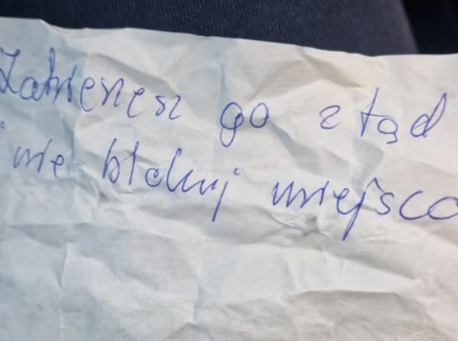 Zabierzesz go z tąd
i nie blokuj miejsca